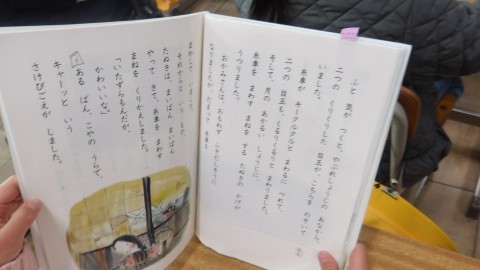 ふと 気が つくと、やぶれしょうじの あなから、
二つの くりくりした 目玉が、こちらを のぞいて
いました。
糸車が キークルクルと まわるに つれて、
二つの 目玉も、くるりくるりと まわりました。
そして、月の あかるい しょうじに、
糸車を まわす まねを する たぬきの かげが
うつりました。
おかみさんは、おもわず ふきだしそうに
なりましたが、だまって 糸車を
まわして いました。
それからと いうもの、
たぬきは、まいばん まいばん
やって きて、糸車を まわす
まねを くりかえしました。
「いたずらもんだが、
かわいいな。」
ある ばん、こやの うらで、
キャーッと いう
さけびごえが しました。